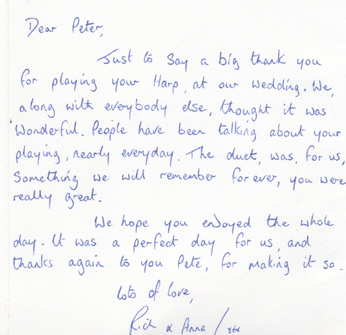 Dear Peter,
Just to say a big thank you
for playing your Harp, at our wedding. We,
along with everybody else, thought it was
Wonderful. People have been talking about your
playing, nearly everyday. The duet, was, for us,
Something we will remember for ever, you were
really great.
We hope you enjoyed the whole
day. It was a perfect day for us, and
thanks again to you Pete, for making it so.
lots of love,
Rich & Anna